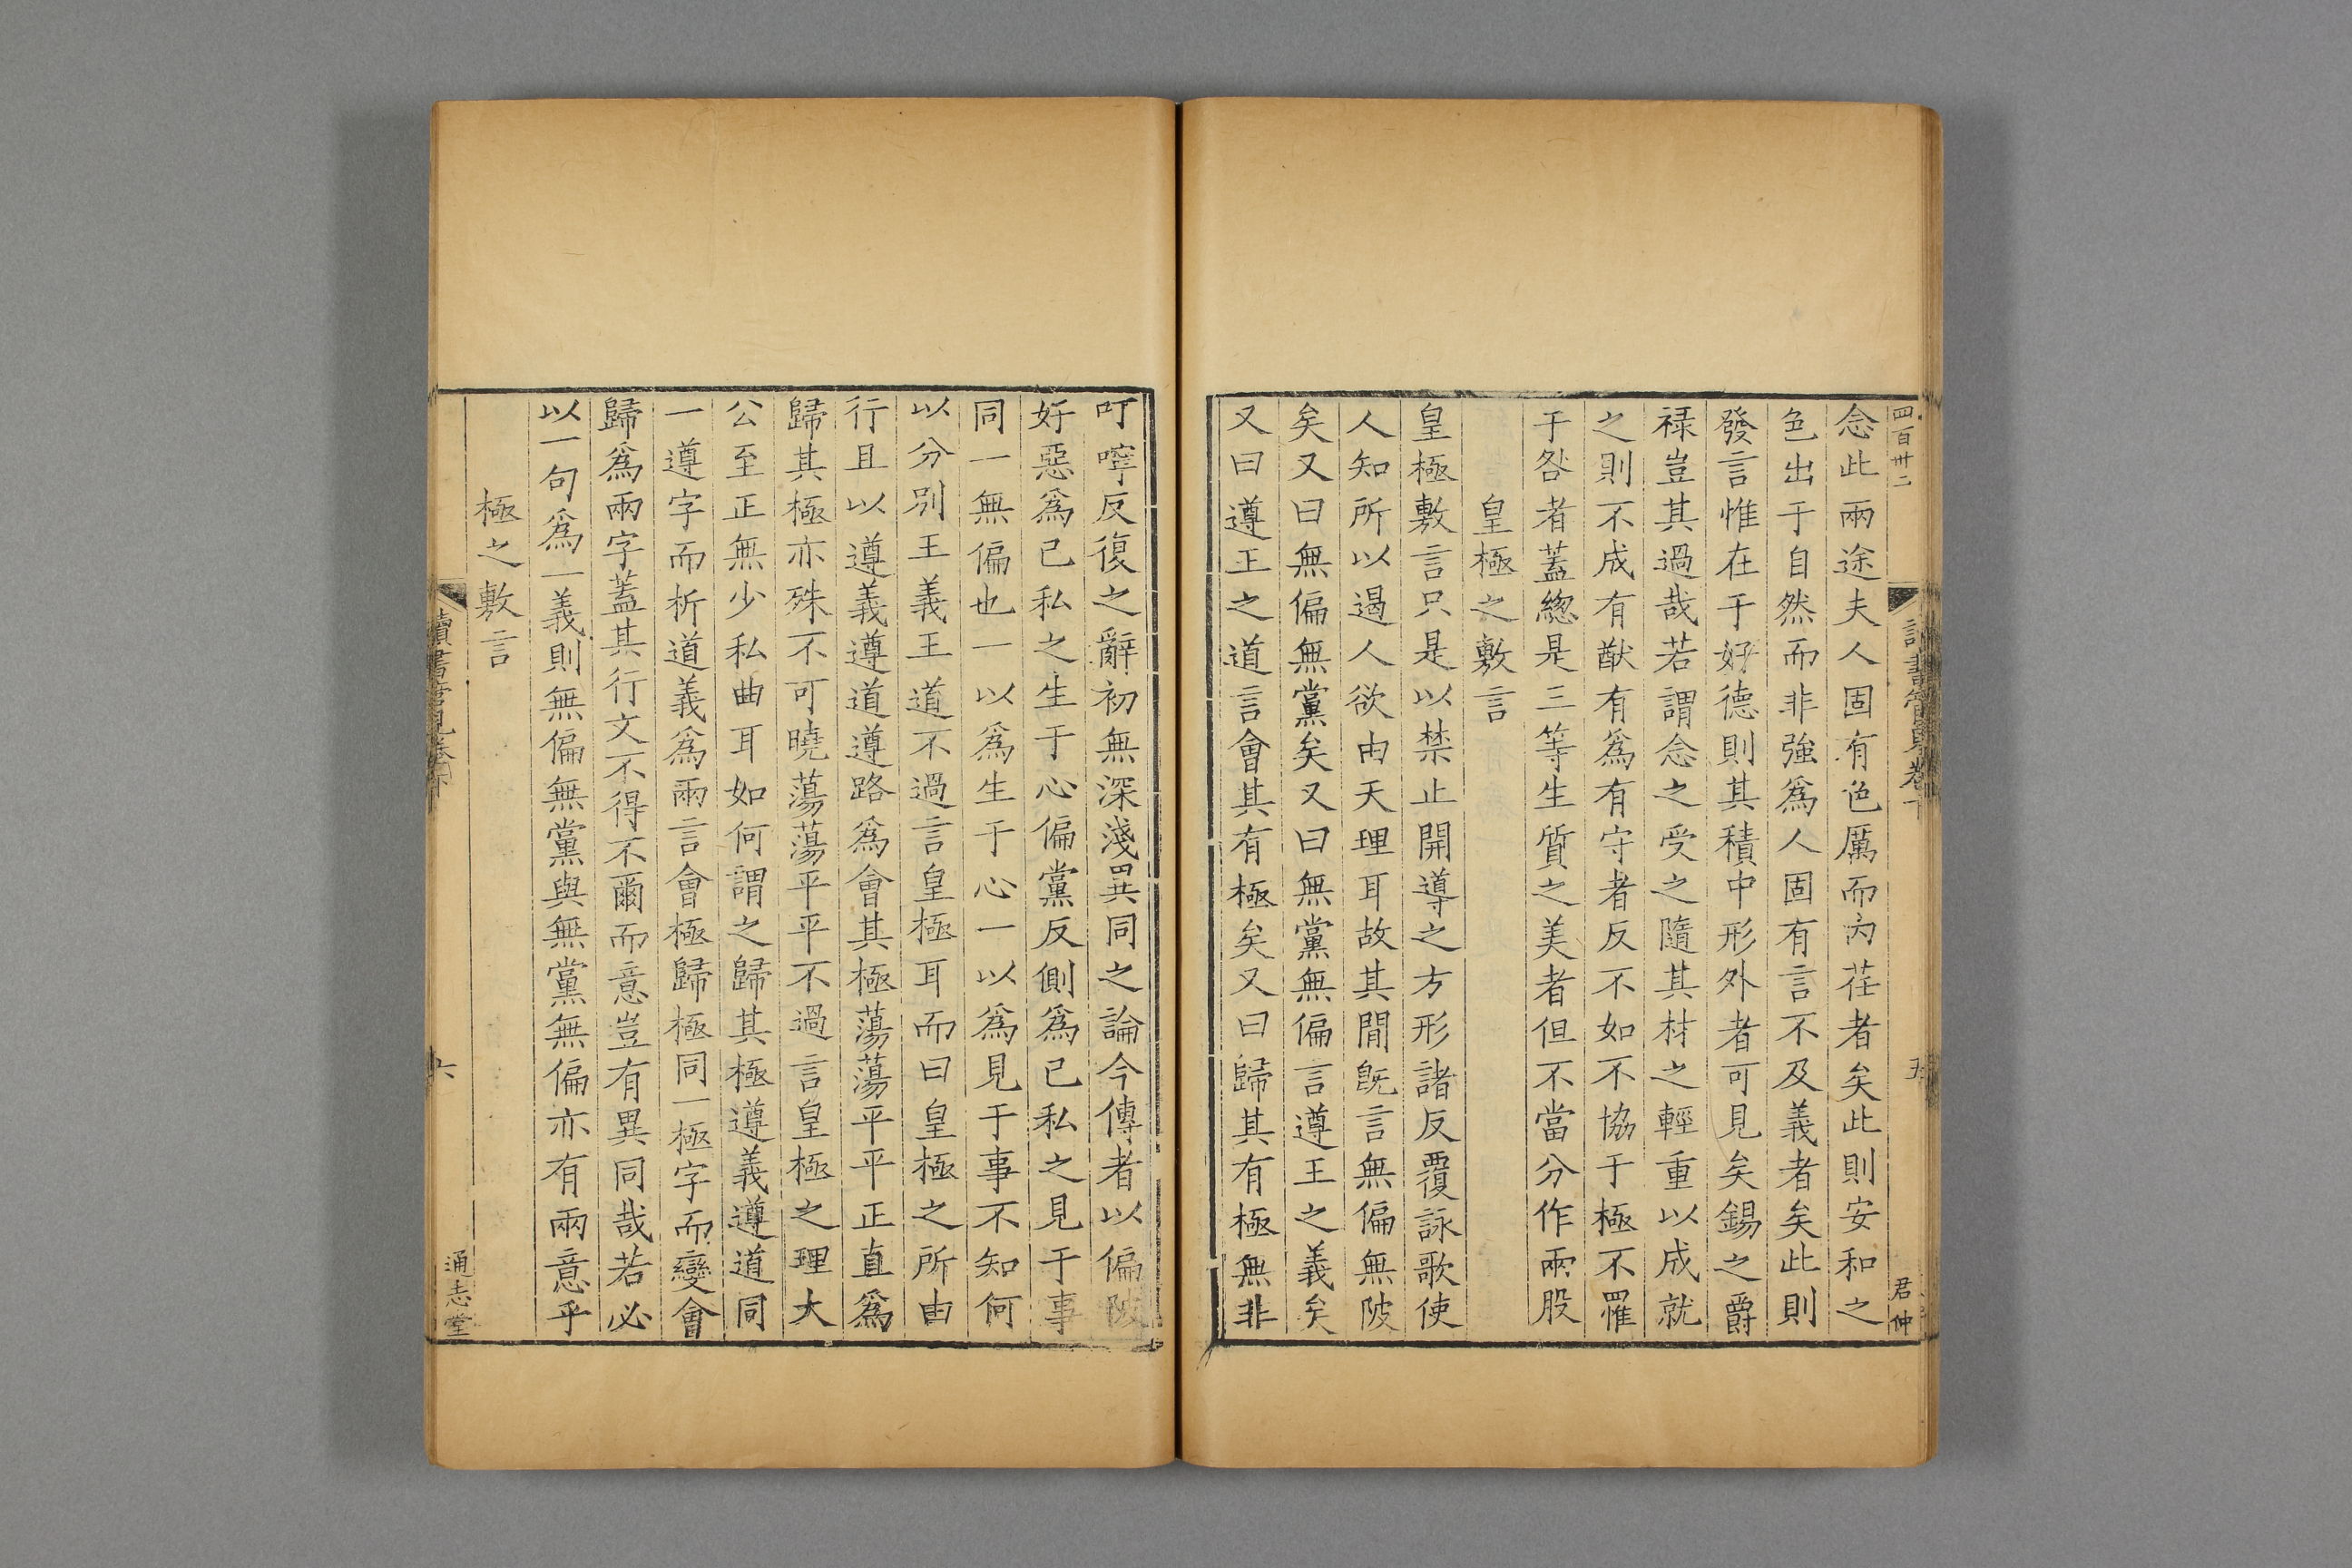 四百卅二
讀書管見卷下
五
君仲
念此兩途夫人固有色厲而内荏者矣此則安和之
色出于自然而非強爲人固有言不及義者矣此則
發言惟在于好德則其積中形外者可見矣錫之爵
禄豈其過哉若謂念之受之隨其材之輕重以成就
之則不成有猷有爲有守者反不如不協于極不罹
于咎者蓋緫是三等生質之美者但不當分作兩股
皇極之敷言
皇極敷言只是以禁止開導之方形諸反覆詠歌使
人知所以遏人欲由天理耳故其閒旣言無偏無陂
矣又曰無偏無黨矣又曰無黨無偏言遵王之義矣
又曰遵王之道言會其有極矣又曰歸其有極無非
叮嚀反復之辭初無深淺異同之論今傳者以偏陂
好惡爲己私之生于心偏黨反側爲己私之見于事
同一無偏也一以爲生于心一以爲見于事不知何
以分別王義王道不過言皇極耳而曰皇極之所由
行且以遵義遵道遵路爲會其極蕩蕩平平正直爲
歸其極亦殊不可曉蕩蕩平平不過言皇極之理大
公至正無少私曲耳如何謂之歸其極遵義遵道同
一遵字而析道義爲兩言會極歸極同一極字而變會
歸爲兩字蓋其行文不得不爾而意豈有異同哉若必
以一句爲一義則無偏無黨與無黨無偏亦有兩意乎
極之敷言
讀書管見卷下
六
通志堂